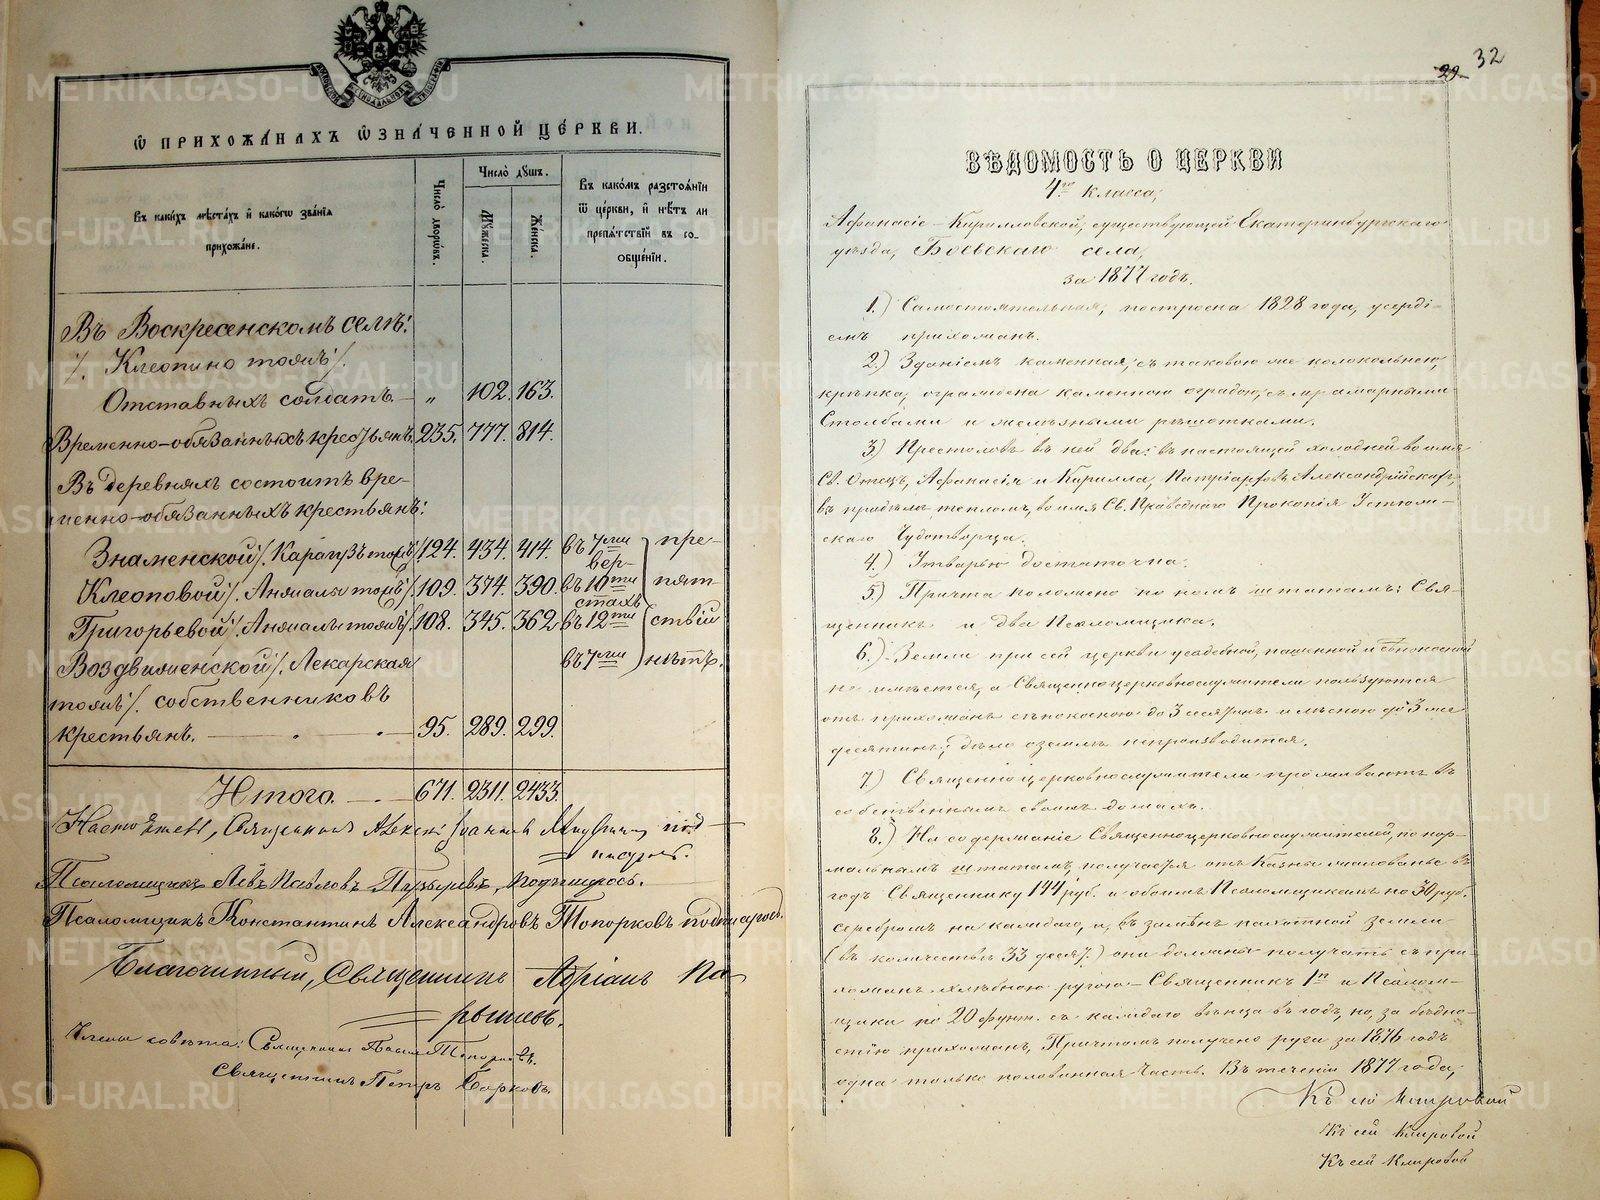 Ѿ ПРИХОЖАНАХЪ ѠЗНАЧЕННОЙ ЦЕРКВИ.
Въ какихъ мѣстахъ и какогѡ званїѧ прихожане.
Число дворѡвъ.
Число душъ.
Мужеска.
Женска.
Въ какомъ разстоѧнїи
ѿ церкви, и нѣтъ ли
препѧтствїй въ со-
общенїи.
Въ Воскресенскомъ селѣ:
/. Клеопино тожъ/.
Отставныхъ солдатъ. — „ 102. 163.
Временно-обязанныхъ крестьянъ. 235. 777. 814.
Въ деревняхъ состоитъ вре-
менно-обязанныхъ крестьянъ:
Знаменской /. Карагузъ тожъ/. 124. 434. 414. въ 7ми вер- пре-
Клеоповой /. Аняшъ тожъ/. 109. 374. 390. въ 10ти стахъ пят
Григорьевой /. Аняшъ тожъ/. 108. 345. 362 въ 12ти ствій
Воздвиженской /. Лекарская въ 7ми нѣтъ.
тожъ/. собственниковъ
крестьянъ. 95. 289. 299.
Итого. — 671. 2311. 2433.
Священникъ под-
писуюсь.
Псаломщикъ Левъ подпишусь.
Псаломщикъ Константинъ Александровъ Топорковъ подписуюсь.
Благочинный, Священникъ Адріанъ
Члены совѣта: Священникъ
Священникъ Петръ
29 32
ВѢДОМОСТЬ О ЦЕРКВИ
4го класса,
Афанасіе-Кирилловской, существующей Екатеринбургскаго
уѣзда, Боевскаго села,
за 1877 годъ.
1.) Самостоятельная, построена 1828 года, усерді-
емъ прихожанъ.
2.) Зданіемъ каменная, съ таковою же колокольнею,
крѣпка, ограждена каменною оградою, съ мраморными
Столбами и желѣзными рѣшотками.
3) Престоловъ въ ней два: въ настоящей холодной во имя
Св. Отецъ, Афанасія и Кирилла, Патріарховъ Александрійскихъ,
въ придѣлѣ, тепломъ, во имя Св. Праведнаго Прокопія Устюж-
скаго Чудотворца.
4.) Утварью достаточна.
5.) Причта положено по новымъ штатамъ: Свя-
щенникъ и два Псаломщика.
6.) Земли при сей церкви усадебной, пашенной и сѣнокосной
не имѣется, а Священноцерковнослужители пользуются
отъ прихожанъ сѣнокосною до 3 десятинъ и лѣсною до 3 же
десятинъ; дѣло о землѣ непроизводится.
7.) Священноцерковнослужители проживаютъ въ
собственныхъ своихъ домахъ.
8.) На содержаніе Священноцерковнослужителей, по нор-
мальнымъ штатамъ, получается отъ Казны жалованье въ
годъ Священнику 144 руб. и обоимъ Псаломщикамъ по 30 руб.
серебромъ на каждаго, и, въ замѣнъ пахотной земли
(въ количествѣ 33 деся/.) они должны получать съ при-
хожанъ хлѣбною ругою — Священникъ 1п и Псалом-
щики по 20 фунт. съ каждаго вѣнца въ годъ, но, за бѣдно-
стію прихожанъ, Причтомъ получено руги за 1876 годъ
одна только половинная часть. Въ теченіи 1877 года,
Къ сей Клировой
Къ сей Клировой
Къ сей Клировой
METRIKI.GASO-URAL.RU